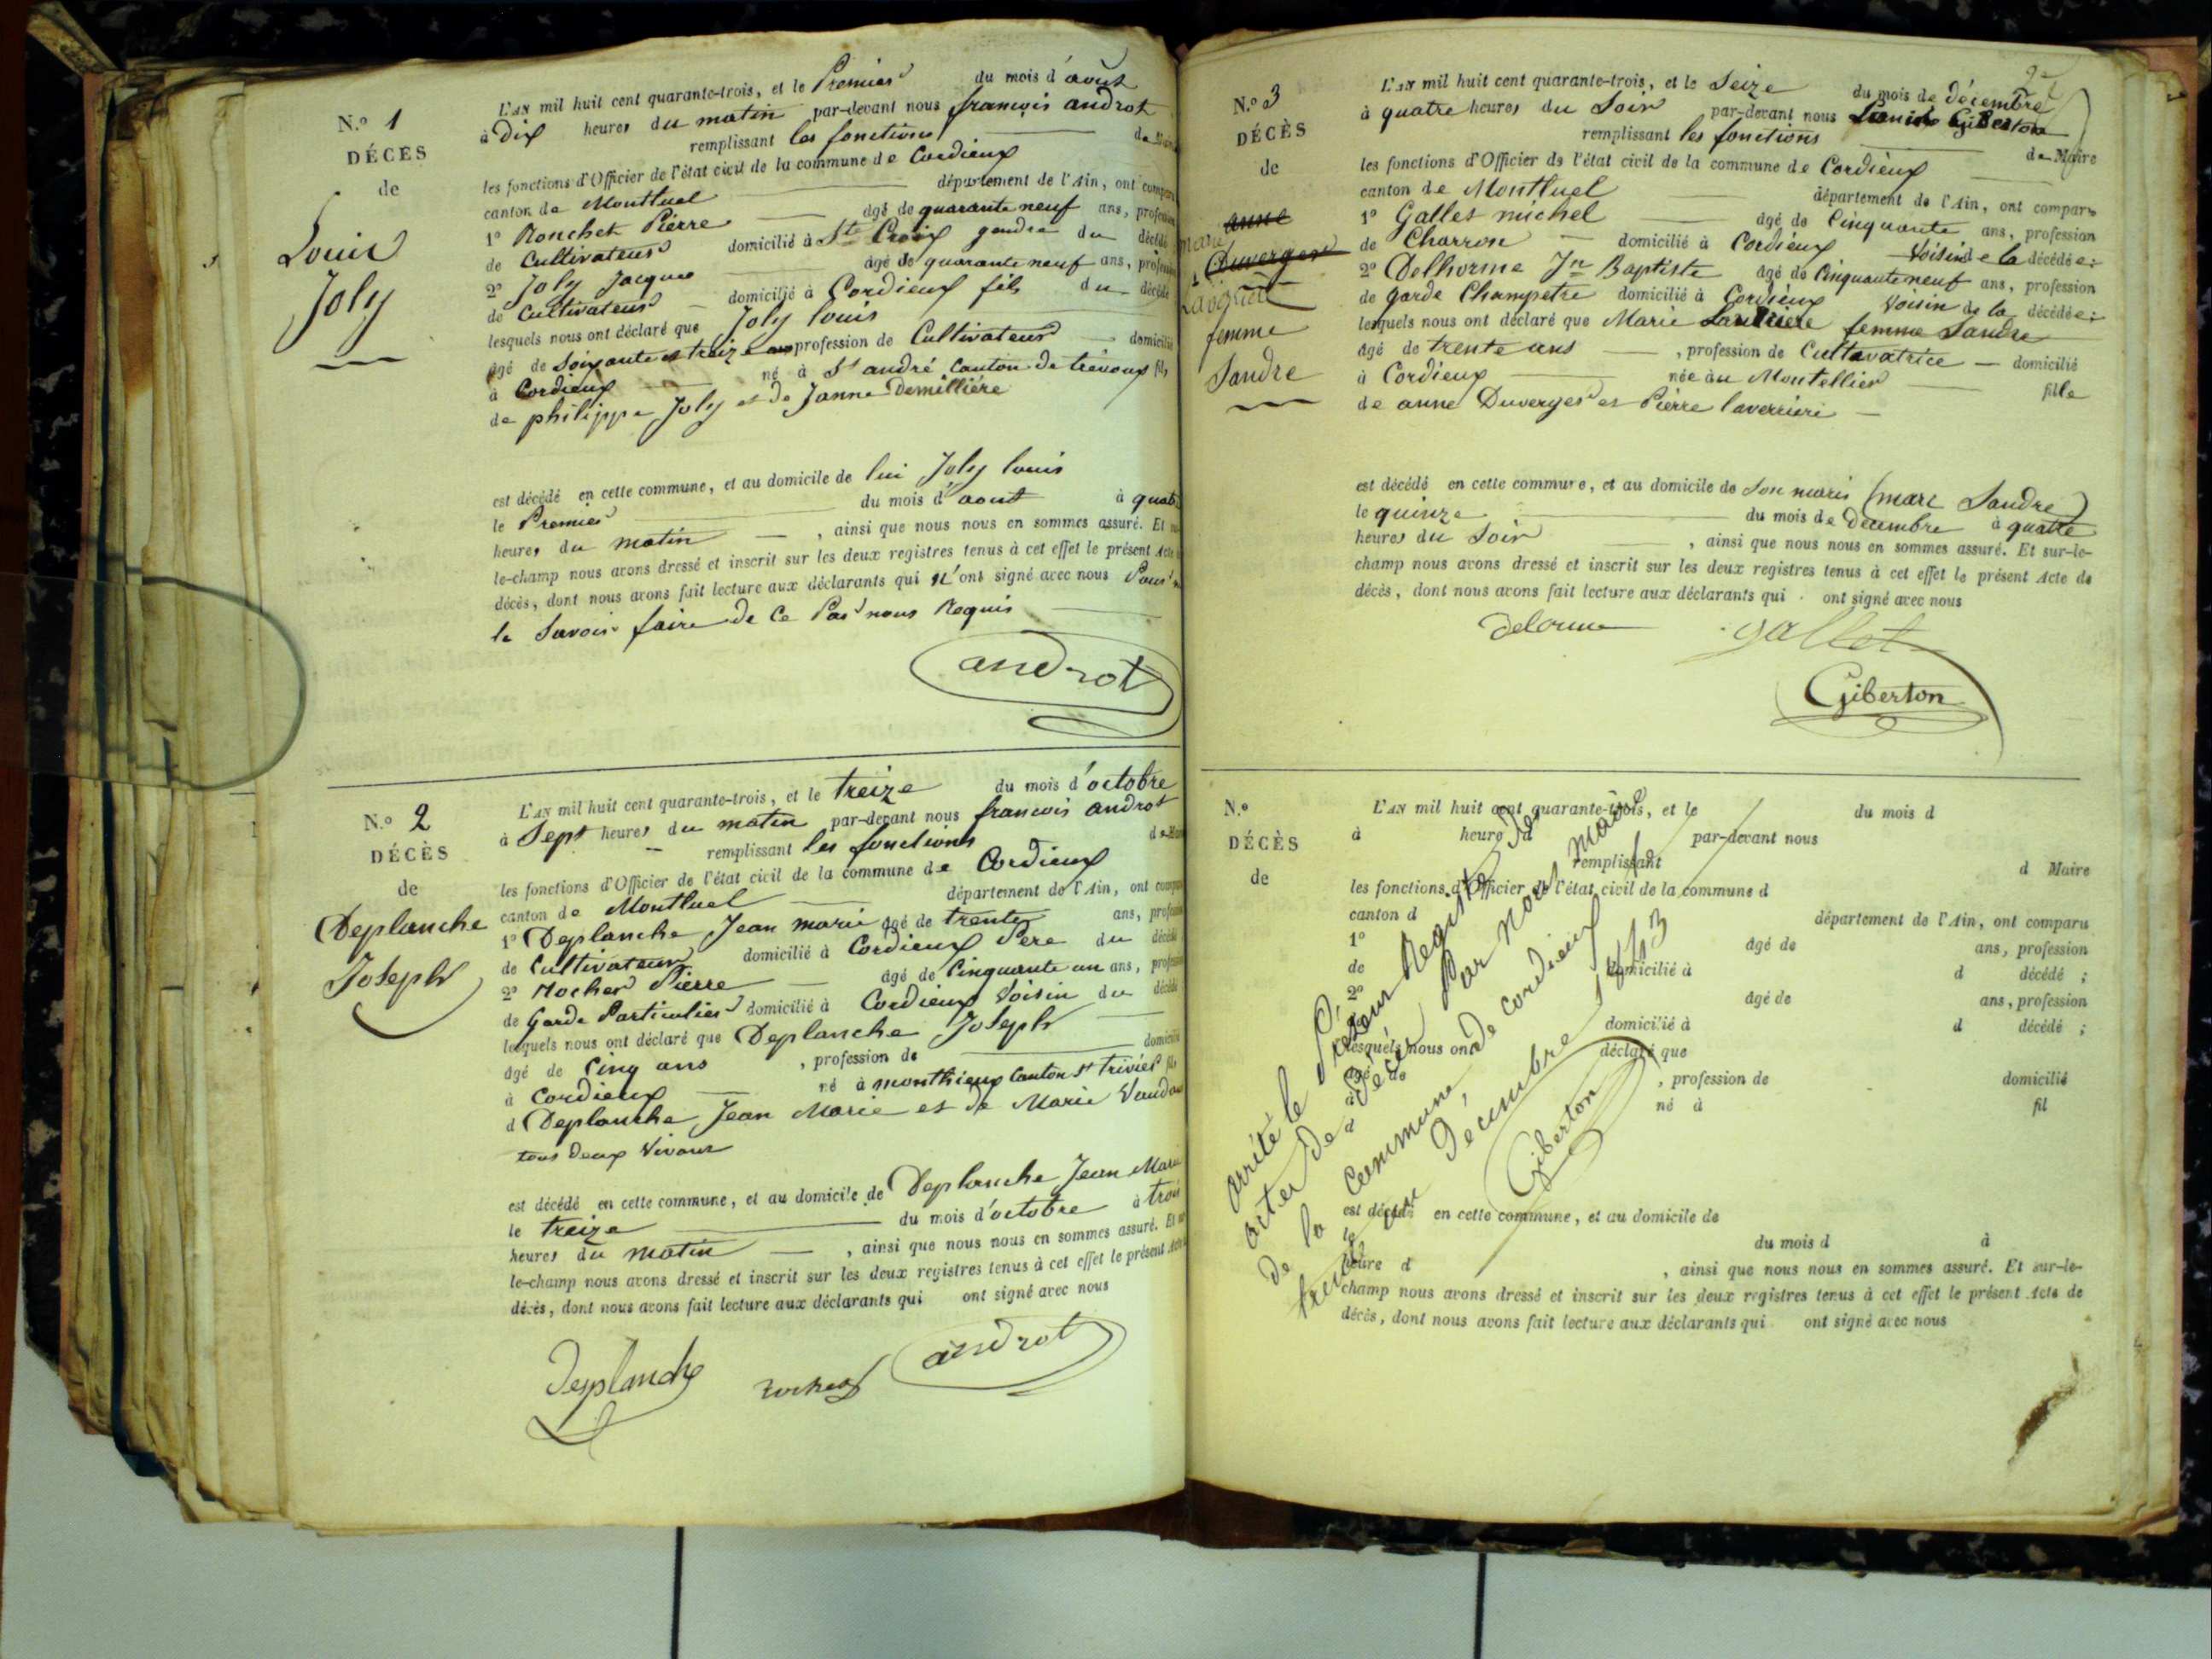 N.º 1
DÉCÈS
de
Louis
Joly
L'AN mil huit cent quarante-trois, et le Premier du mois d'août
à dix heures du matin par-devant nous françois androt
remplissant les fonctions de
les fonctions d'Officier de l'état civil de la commune de Cordieux
canton de Montluel département de l'Ain, ont
1º Ronchet Pierre âgé de quarante neuf ans,
de Cultivateur domicilié à Ste Croix gendre du décédé
2º Joly Jacque âgé de quarante neuf ans,
de Cultivateur domicilié à Cordieux fils du décédé
lesquels nous ont déclaré que Joly louis
âgé de Soixante et treize ans profession de Cultivateur domicilié
à Cordieux né à St andré Canton de trévoux fils
de philippe Joly et de Janne Demillière
est décédé en cette commune, et au domicile de lui Joly louis
le Premier du mois d'aout à
heures du matin , ainsi que nous nous en sommes assuré. Et
le-champ nous avons dressé et inscrit sur les deux registres tenus à cet effet le présent Acte
décès, dont nous avons fait lecture aux déclarants qui n'ont signé avec nous Pour
le Savoir faire de Ce Par nous Requis
androt
N.º 2
DÉCÈS
de
Deplanche
Joseph
L'AN mil huit cent quarante-trois, et le treize du mois d'octobre
à Sept heures du matin par-devant nous francois androt
remplissant les fonctions
les fonctions d'Officier de l'état civil de la commune de Cordieux
canton de Montluel département de l'Ain, ont
1º Deplanche Jean marie âgé de trente ans,
de Cultivateur domicilié à Cordieux Père du décédé
2º Rocher Pierre âgé de Cinquante un ans,
de Garde Particulier domicilié à Cordieux Voisin du décédé
lesquels nous ont déclaré que Deplanche Joseph
âgé de Cinq ans , profession de
à Cordieux né à monthieux Canton St Trivier fils
d Deplanche Jean Marie et de Marie
tous deux Vivant
est décédé en cette commune, et au domicile de Deplanche Jean Marie
le treize du mois d'octobre à trois
heures du matin , ainsi que nous nous en sommes assuré. Et
le-champ nous avons dressé et inscrit sur les deux registres tenus à cet effet le présent
décès, dont nous avons fait lecture aux déclarants qui ont signé avec nous
Deplanche androt
N.º 3
DÉCÈS
de
anne
Duverger
femme
Sandre
L'AN mil huit cent quarante-trois, et le Seize du mois de décembre
à quatre heures du Soir par-devant nous Giberton
remplissant les fonctions de Maire
les fonctions d'Officier de l'état civil de la commune de Cordieux
canton de Montluel département de l'Ain, ont comparu
1º Gallet michel âgé de Cinquante ans, profession
de Charron domicilié à Cordieux Voisin de la décédée;
2º Delhorme Jn Baptiste âgé de Cinquante neuf ans, profession
de garde Champetre domicilié à Cordieux Voisin de la décédée;
lesquels nous ont déclaré que Marie femme Sandre
âgé de trente ans , profession de Cultavatrice domicilié
à Cordieux née au Montellier fille
de anne Duverger et Pierre laverriere
est décédé en cette commune, et au domicile de Son maris (marc Sandre)
le quinze du mois de Decembre à quatre
heures du Soir , ainsi que nous nous en sommes assuré. Et sur-le-
champ nous avons dressé et inscrit sur les deux registres tenus à cet effet le présent Acte de
décès, dont nous avons fait lecture aux déclarants qui ont signé avec nous
gallet
Giberton
N.º
DÉCÈS
de
L'AN mil huit cent quarante-trois, et le du mois d
à heure d par-devant nous
remplissant d Maire
les fonctions d'Officier de l'état civil de la commune d
canton d département de l'Ain, ont comparu
1º âgé de ans, profession
de domicilié à d décédé ;
2º âgé de ans, profession
domicilié à d décédé ;
lesquels nous ont déclaré que
âgé de , profession de domicilié
à né à fil
d
est décédé en cette commune, et au domicile de
le du mois d à
heure d , ainsi que nous nous en sommes assuré. Et sur-le-
champ nous avons dressé et inscrit sur les deux registres tenus à cet effet le présent Acte de
décès, dont nous avons fait lecture aux déclarants qui ont signé avec nous
arrêté le Présent Registre des
actes de Décès Par Nous maire
de la Commune de Cordieux
le trente un Décembre 1843
Giberton